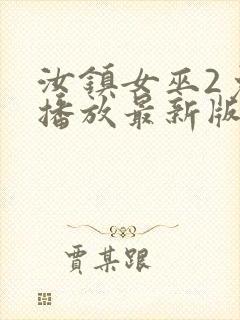 汝鎮女巫2
播放最新版
賈某跟